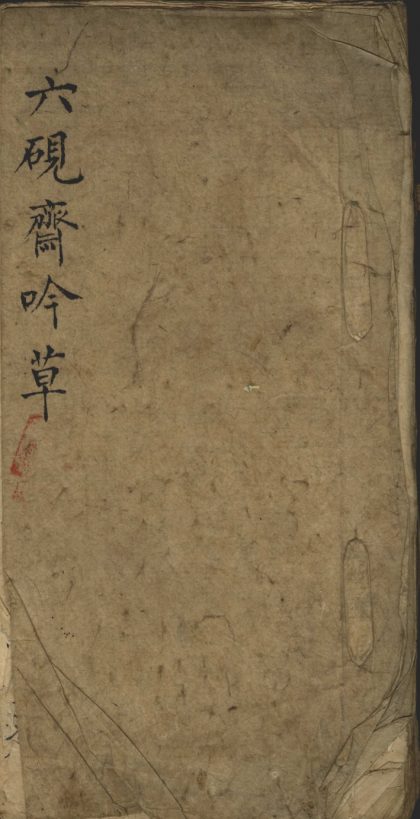 六硯齋吟草